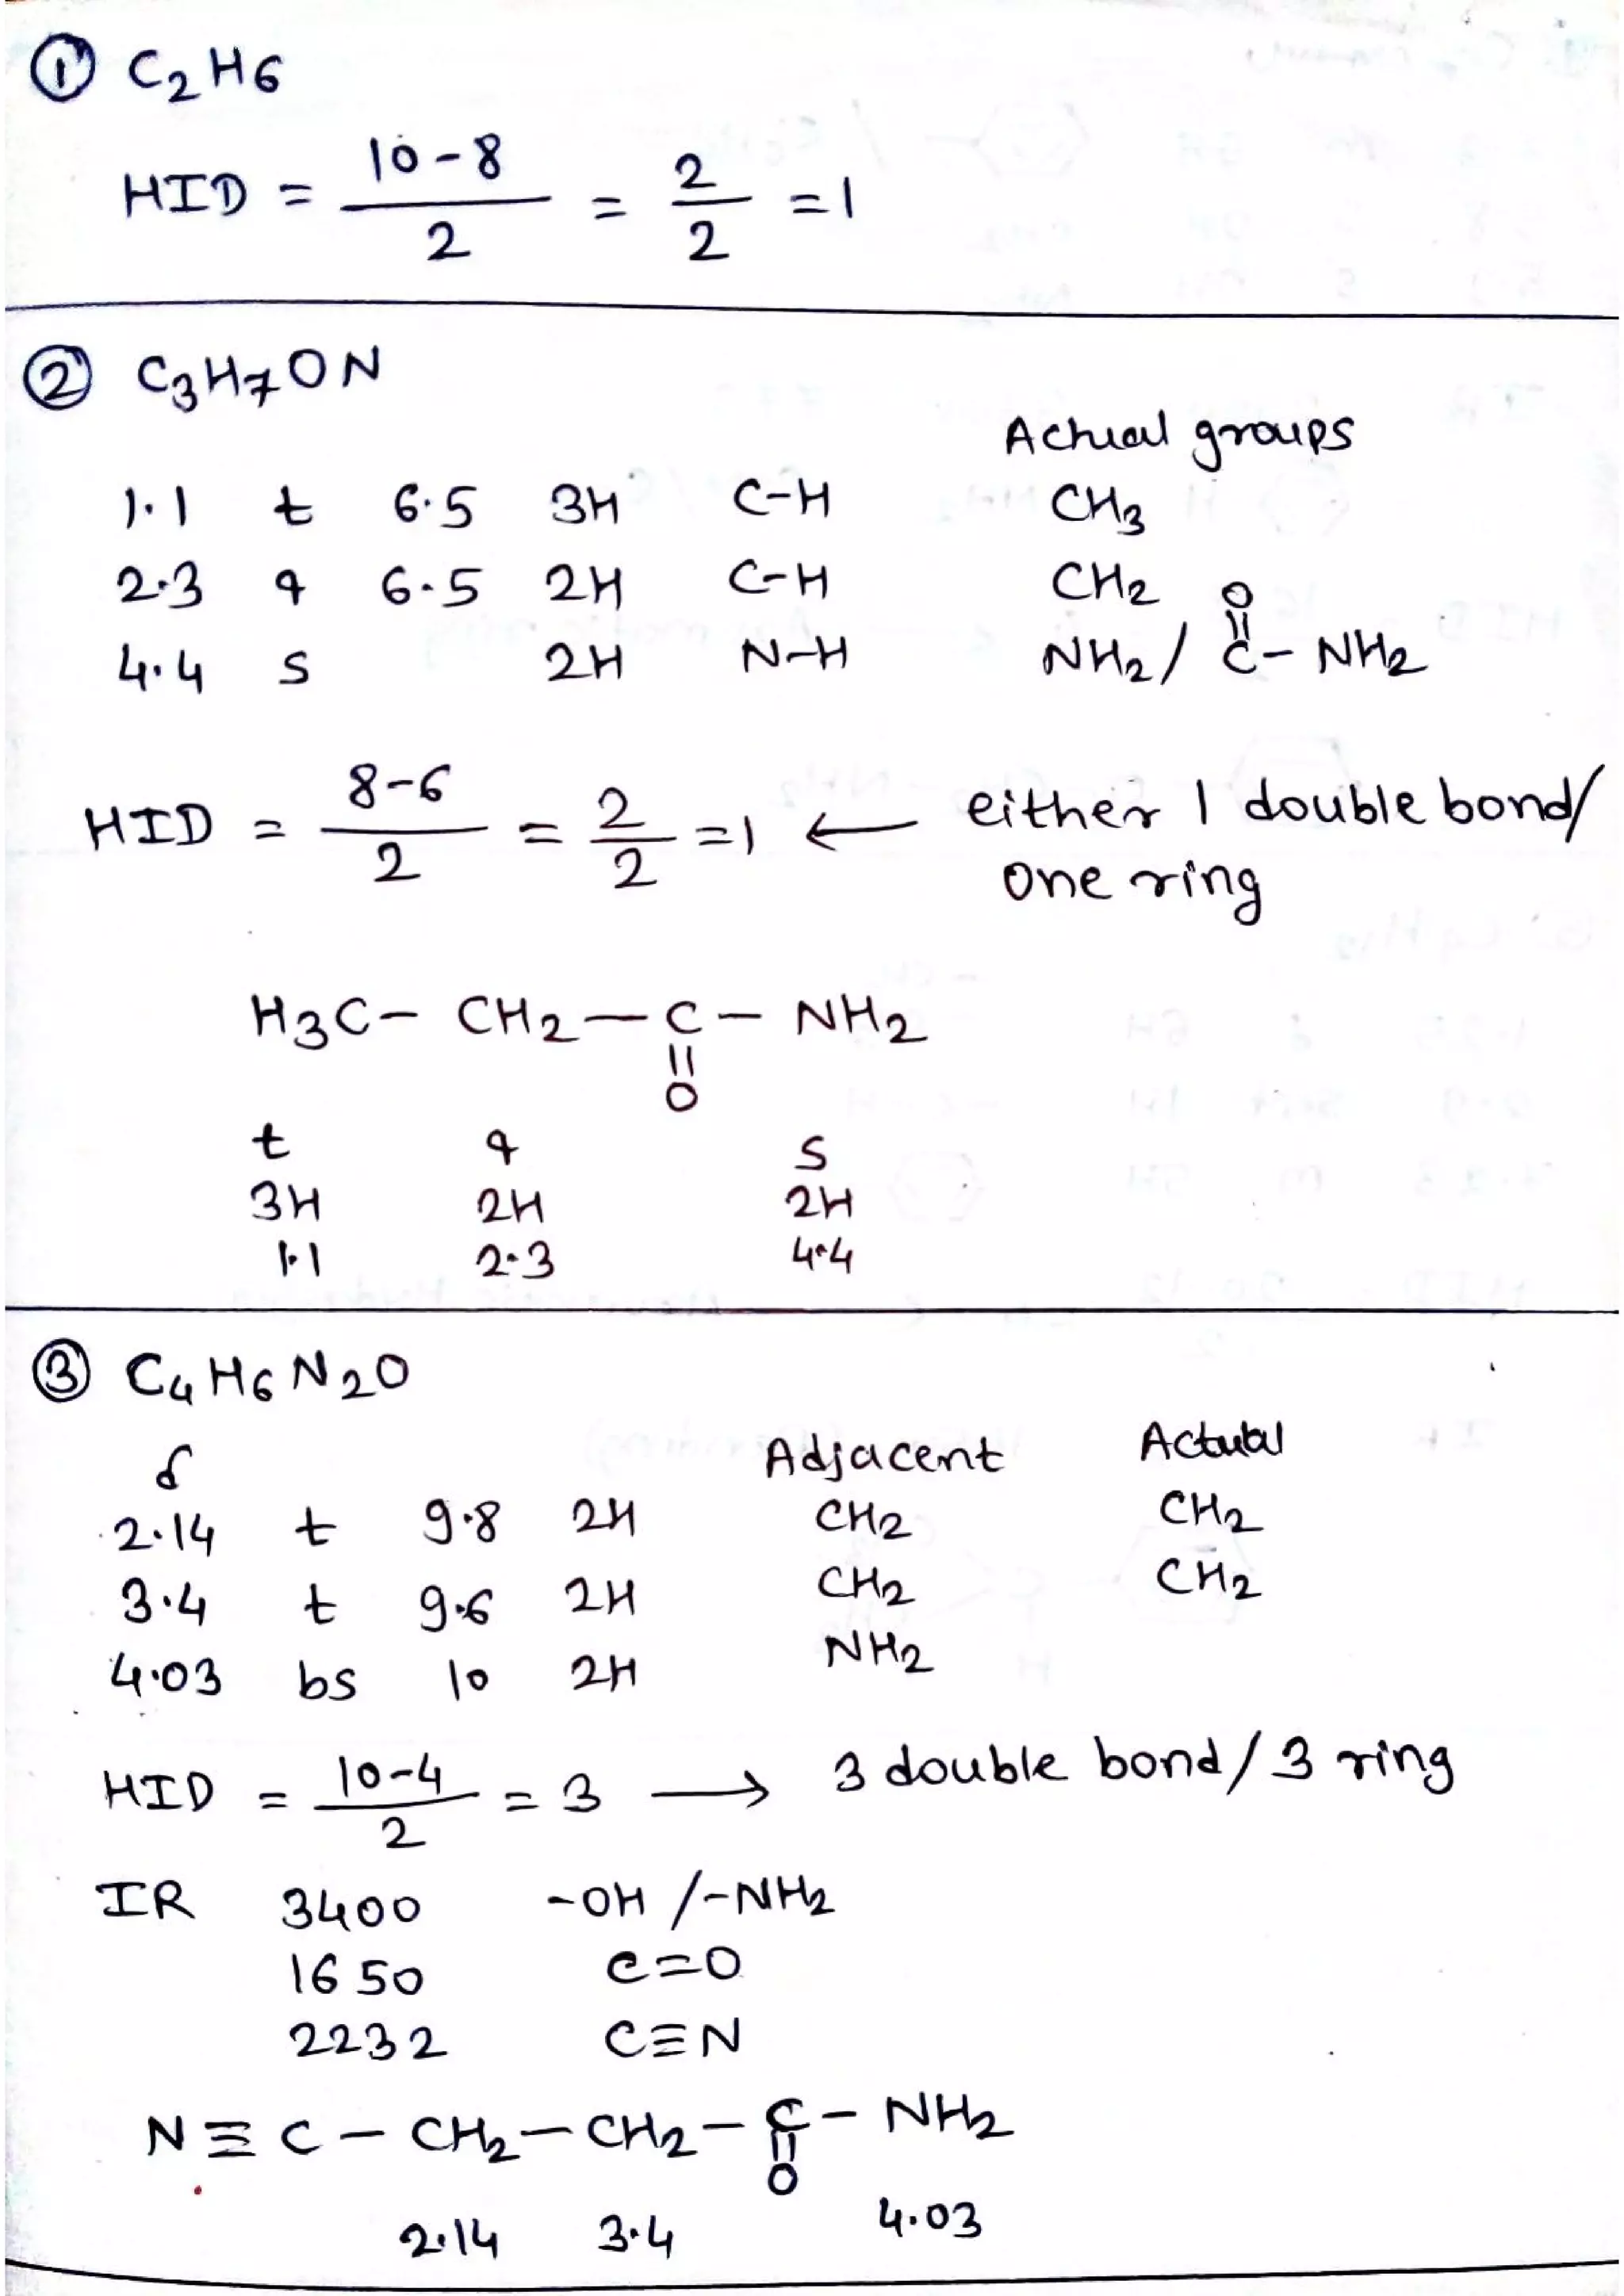 ① C2H6
HID = 10-8/2 = 2/2 = 1
② C3H7ON
Actual groups
1.1 t 6.5 3H C-H CH3
2.3 q 6.5 2H C-H CH2
4.4 s 2H N-H NH2 / C(=O)-NH2
HID = 8-6/2 = 2/2 = 1 ← either 1 double bond/
one ring
H3C - CH2 - C - NH2
||
O
t q s
3H 2H 2H
1.1 2.3 4.4
③ C4H6N2O
δ Adjacent Actual
2.14 t 9.8 2H CH2 CH2
3.4 t 9.6 2H CH2 CH2
4.03 bs 10 2H NH2
HID = 10-4/2 = 3 → 3 double bond / 3 ring
IR 3400 -OH /-NH2
1650 C=O
2232 C≡N
N ≡ C - CH2 - CH2 - C - NH2
||
O
2.14 3.4 4.03